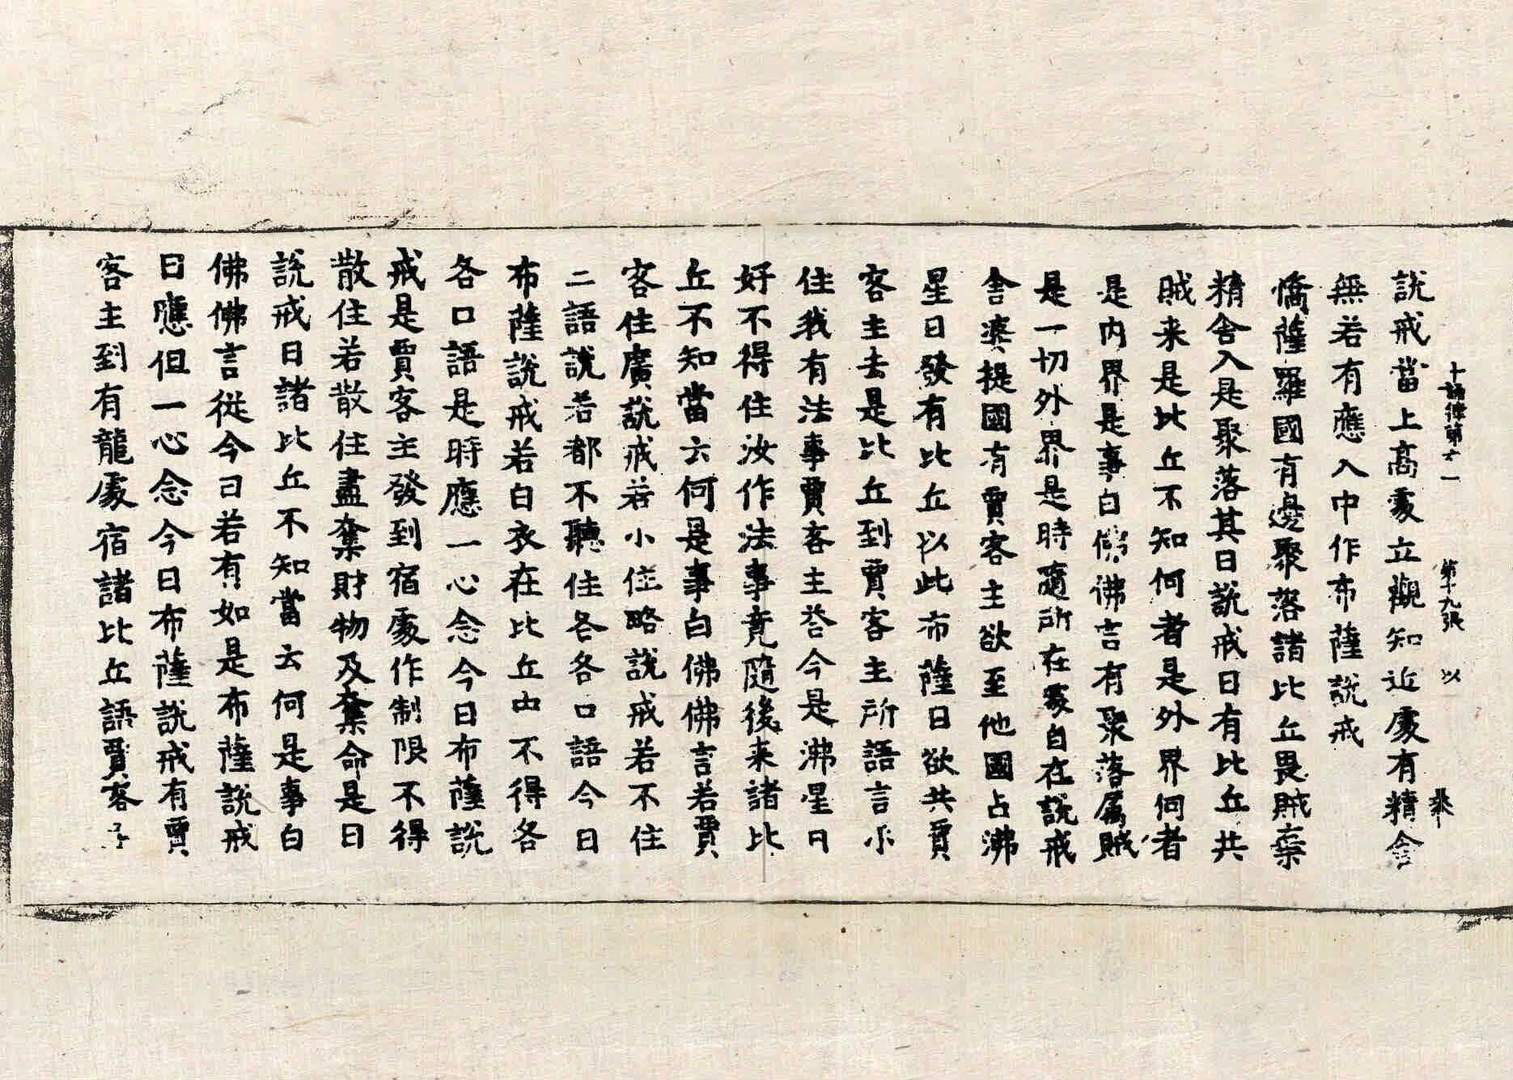 十誦律第廿一 第十九張 以
說戒當上高處立觀知近處有精舍
無若有應入中作布薩說戒
憍薩羅國有邊聚落諸比丘畏賊棄
精舍入是聚落其日說戒日有比丘共
賊来是比丘不知何者是外界何者
是內界是事白佛佛言有聚落属賊
是一切外界是時隨所在處自在說戒
舍婆提國有賈客主欲至他國占沸
星日發有比丘以此布薩日欲共賈
客主去是比丘到賈客主所語言小
住我有法事賈客主荅今是沸星日
好不得住汝作法事竟隨後来諸比
丘不知當云何是事白佛佛言若賈
客住廣說戒若小住略說戒若不住
二語說若都不聽住各各口語今日
布薩說戒若白衣在比丘中不得各
各口語是時應一心念今日布薩說
戒是賈客主發到宿處作制限不得
散住若散住盡奪財物及奪命是日
說戒日諸比丘不知當云何是事白
佛佛言從今日若有如是布薩說戒
日應但一心念今日布薩說戒有賈
客主到有龍處宿諸比丘語賈客